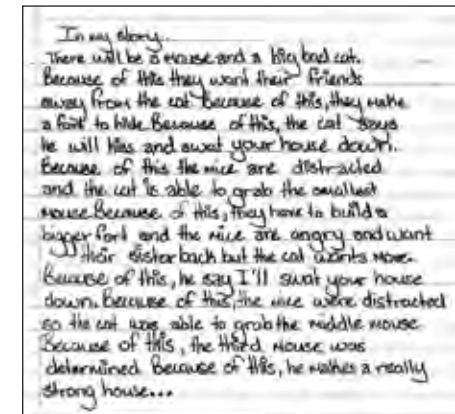 In my story...
There will be a mouse and a big bad cat.
Because of this they want their friends
away from the cat Because of this, they make
a fort to hide Because of this, the cat says
he will hiss and swat your house down.
Because of this the mice are distracted
and the cat is able to grab the smallest
mouse Because of this, they have to build a
bigger fort and the mice are angry and want
their sister back but the cat wants more.
Because of this, he say I'll swat your house
down. Because of this, the mice were distracted
so the cat was able to grab the middle mouse
Because of this, the third mouse was
determined Because of this, he makes a really
strong house...